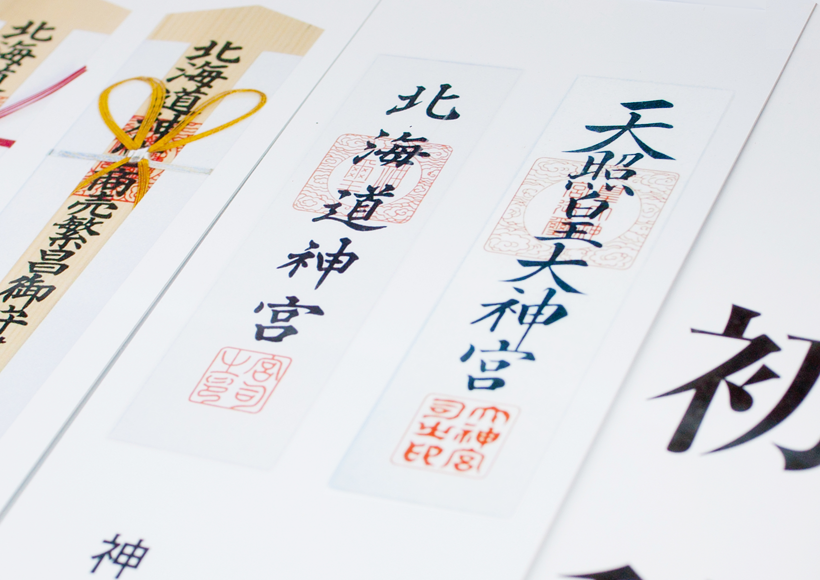 北海道
北海道神宮商売繁昌御守
北海道神宮
宮司之印
天照皇大神宮
大神宮司之印
神
初